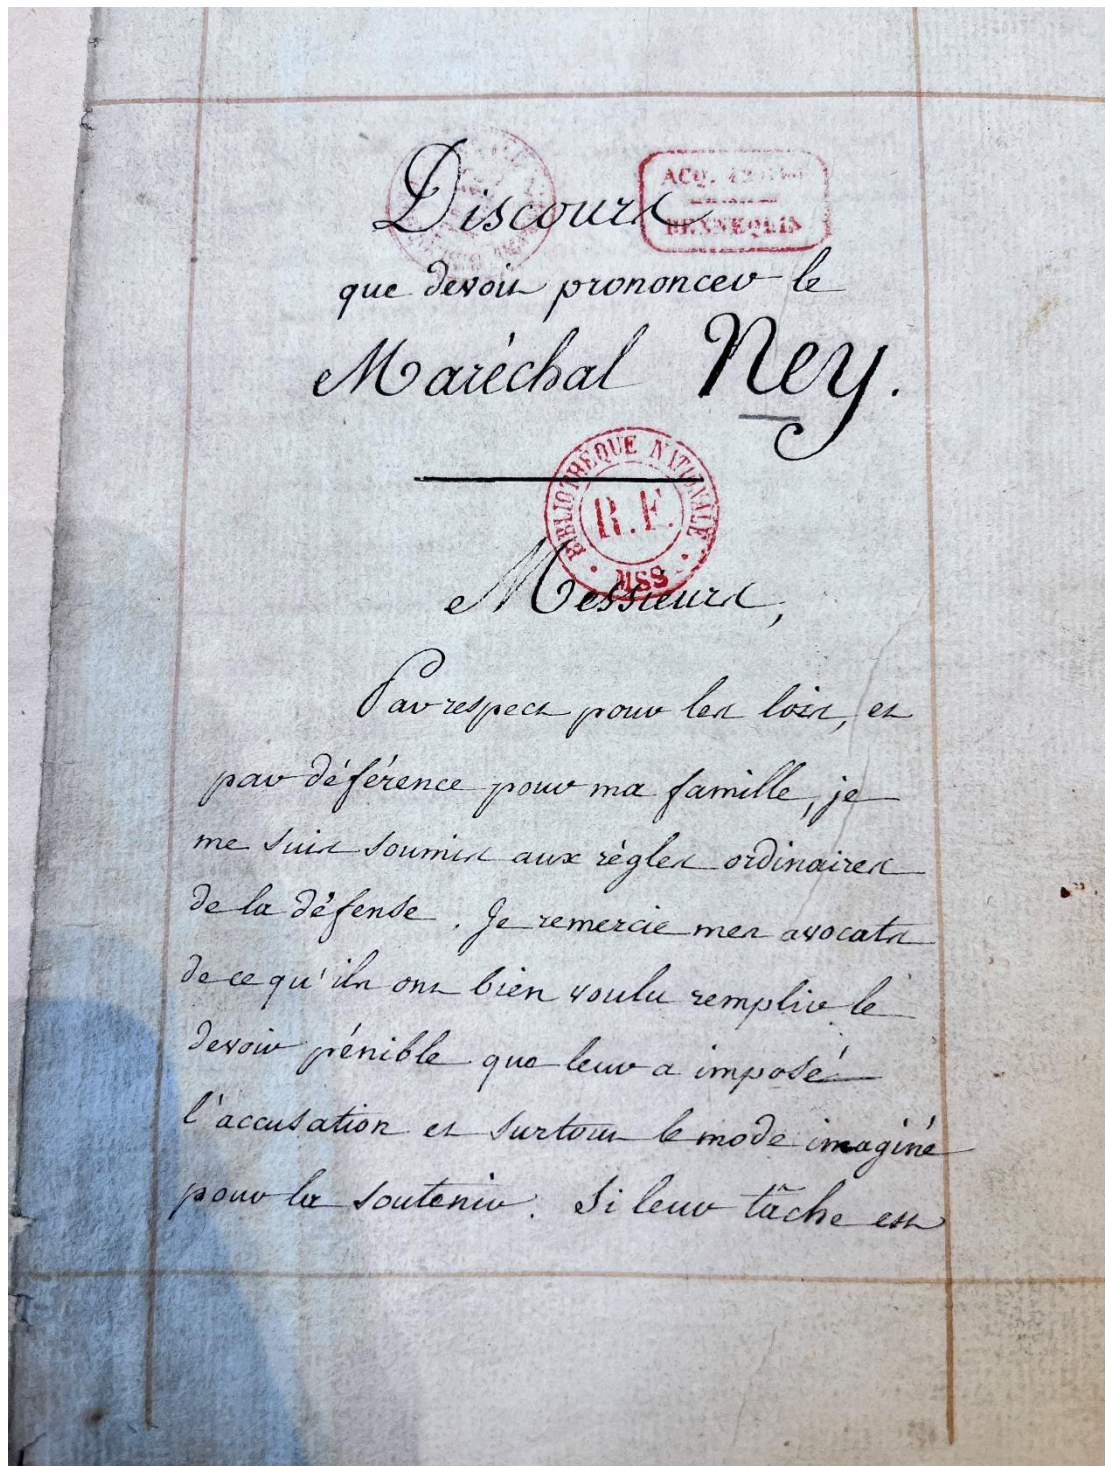 Discours
ACQ.
HENNEQUIN
que devoit prononcer le
Maréchal Ney.
BIBLIOTHÈQUE NATIONALE
R.F.
MSS
Messieurs,
Par respect pour les lois, et
par déférence pour ma famille, je
me suis soumis aux règles ordinaires
de la défense. Je remercie mes avocats
de ce qu'ils ont bien voulu remplir le
devoir pénible que leur a imposé
l'accusation et surtout le mode imaginé
pour la soutenir. Si leur tâche est